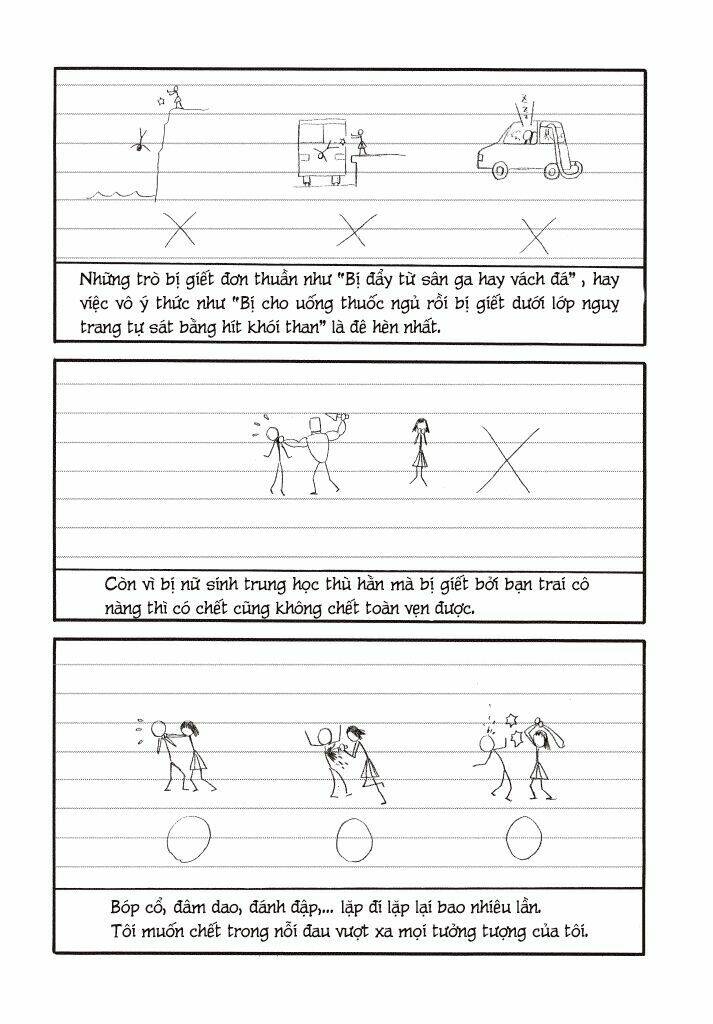 Những trò bị giết đơn thuần như "Bị đẩy từ sân ga hay vách đá", hay
việc vô ý thức như "Bị cho uống thuốc ngủ rồi bị giết dưới lớp nguỵ
trang tự sát bằng hít khói than" là đê hèn nhất.
Còn vì bị nữ sinh trung học thù hằn mà bị giết bởi bạn trai cô
nàng thì có chết cũng không chết toàn vẹn được.
Bóp cổ, đâm dao, đánh đập,... lặp đi lặp lại bao nhiêu lần.
Tôi muốn chết trong nỗi đau vượt xa mọi tưởng tượng của tôi.